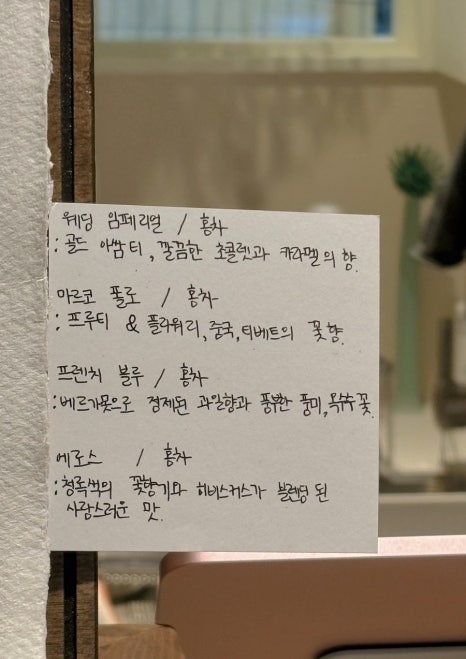 웨딩 임페리얼 / 홍차
: 골드 아쌈티, 깔끔한 초콜렛과 카라멜의 향.
마르코 폴로 / 홍차
: 프루티 & 플라워리, 중국, 티베트의 꽃향.
프렌치 블루 / 홍차
: 베르가못으로 정제된 과일향과 풍부한 풍미, 옥수수꽃.
에로스 / 홍차
: 청록색의 꽃향기와 히비스커스가 블렌딩 된
사랑스러운 맛.